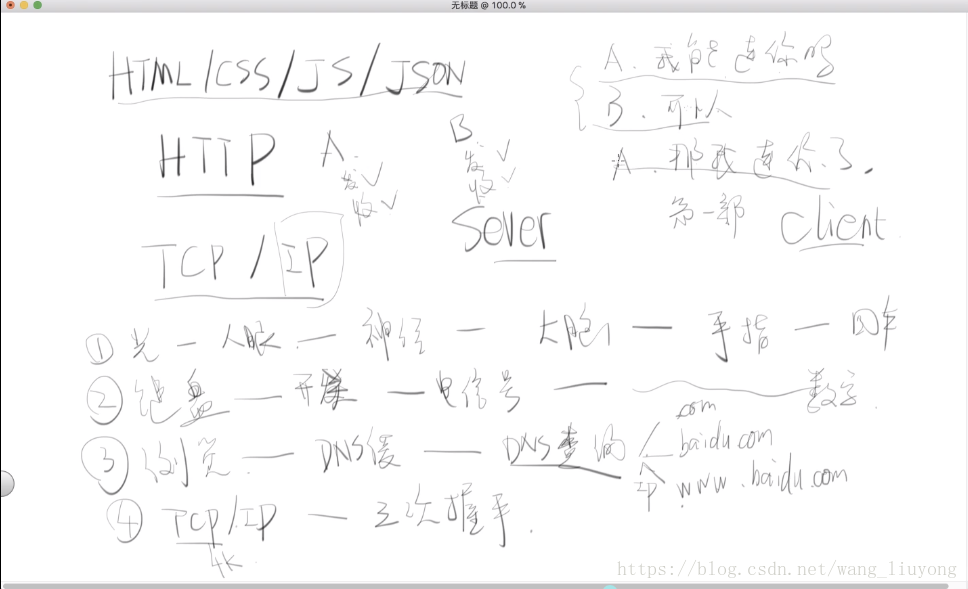 无标题 @ 100.0 %
HTML/CSS/JS/JSON
A. 我能连你吗
B. 可以
A. 那我连你了.
HTTP
A.
发 ✓
收 ✓
B
发 ✓
收 ✓
第一部
Client
Sever
TCP / IP
① 光 — 人眼 — 神经 — 大脑 — 手指 — 回车
② 键盘 — 开 — 电信号 — 数字.
③ 浏览 — DNS缓 — DNS查询
.com
baidu.com
IP www.baidu.com
④ TCP/IP — 三次握手.
4K
https://blog.csdn.net/wang_liuyong